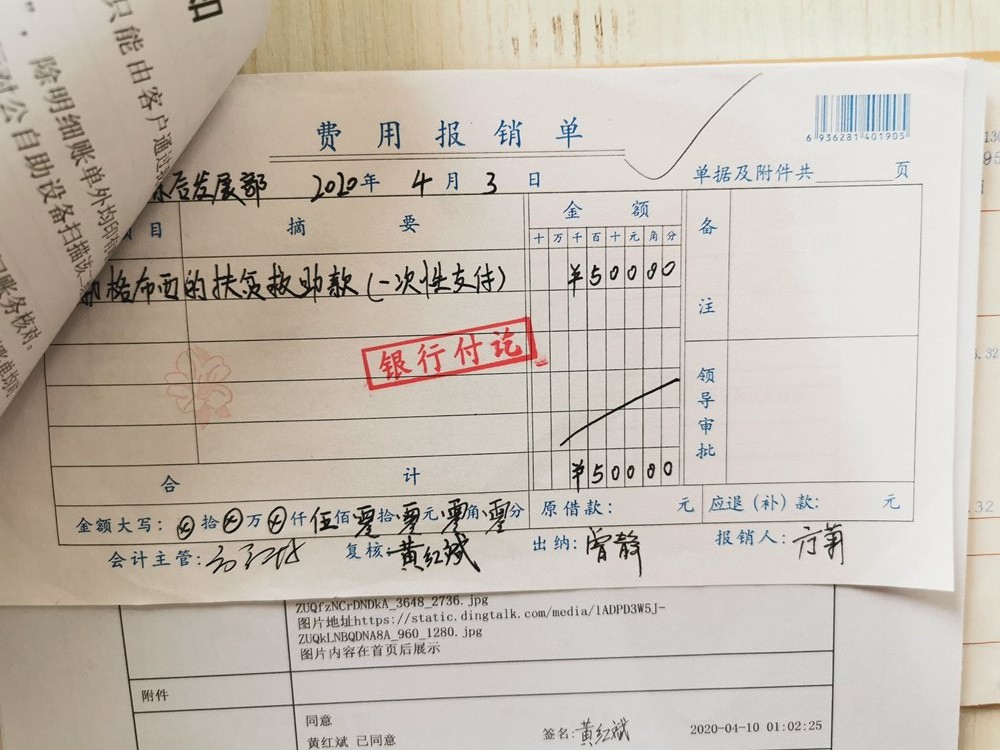 只能由客户通过
除明细账单外均印有
对公自助设备扫描该
账务核对。
费用报销单
6 936281 401905
后发展部 2020年 4月 3日
单据及附件共 页
目 摘要 金额 备注
十万千百十元角分
格布西的扶贫救助款(一次性支付) ¥50000
银行付讫
领导审批
合计 ¥50000
金额大写：⊗拾⊗万⊗仟伍佰零拾零元零角零分 原借款： 元 应退（补）款： 元
会计主管： 复核：黄红斌 出纳：曾静 报销人：方萧
ZUQfzNCrDNDkA_3648_2736.jpg
图片地址https://static.dingtalk.com/media/lADPD3W5J-
ZUQkLNBQDNA8A_960_1280.jpg
图片内容在首页后展示
附件
同意
黄红斌 已同意 签名：黄红斌 2020-04-10 01:02:25